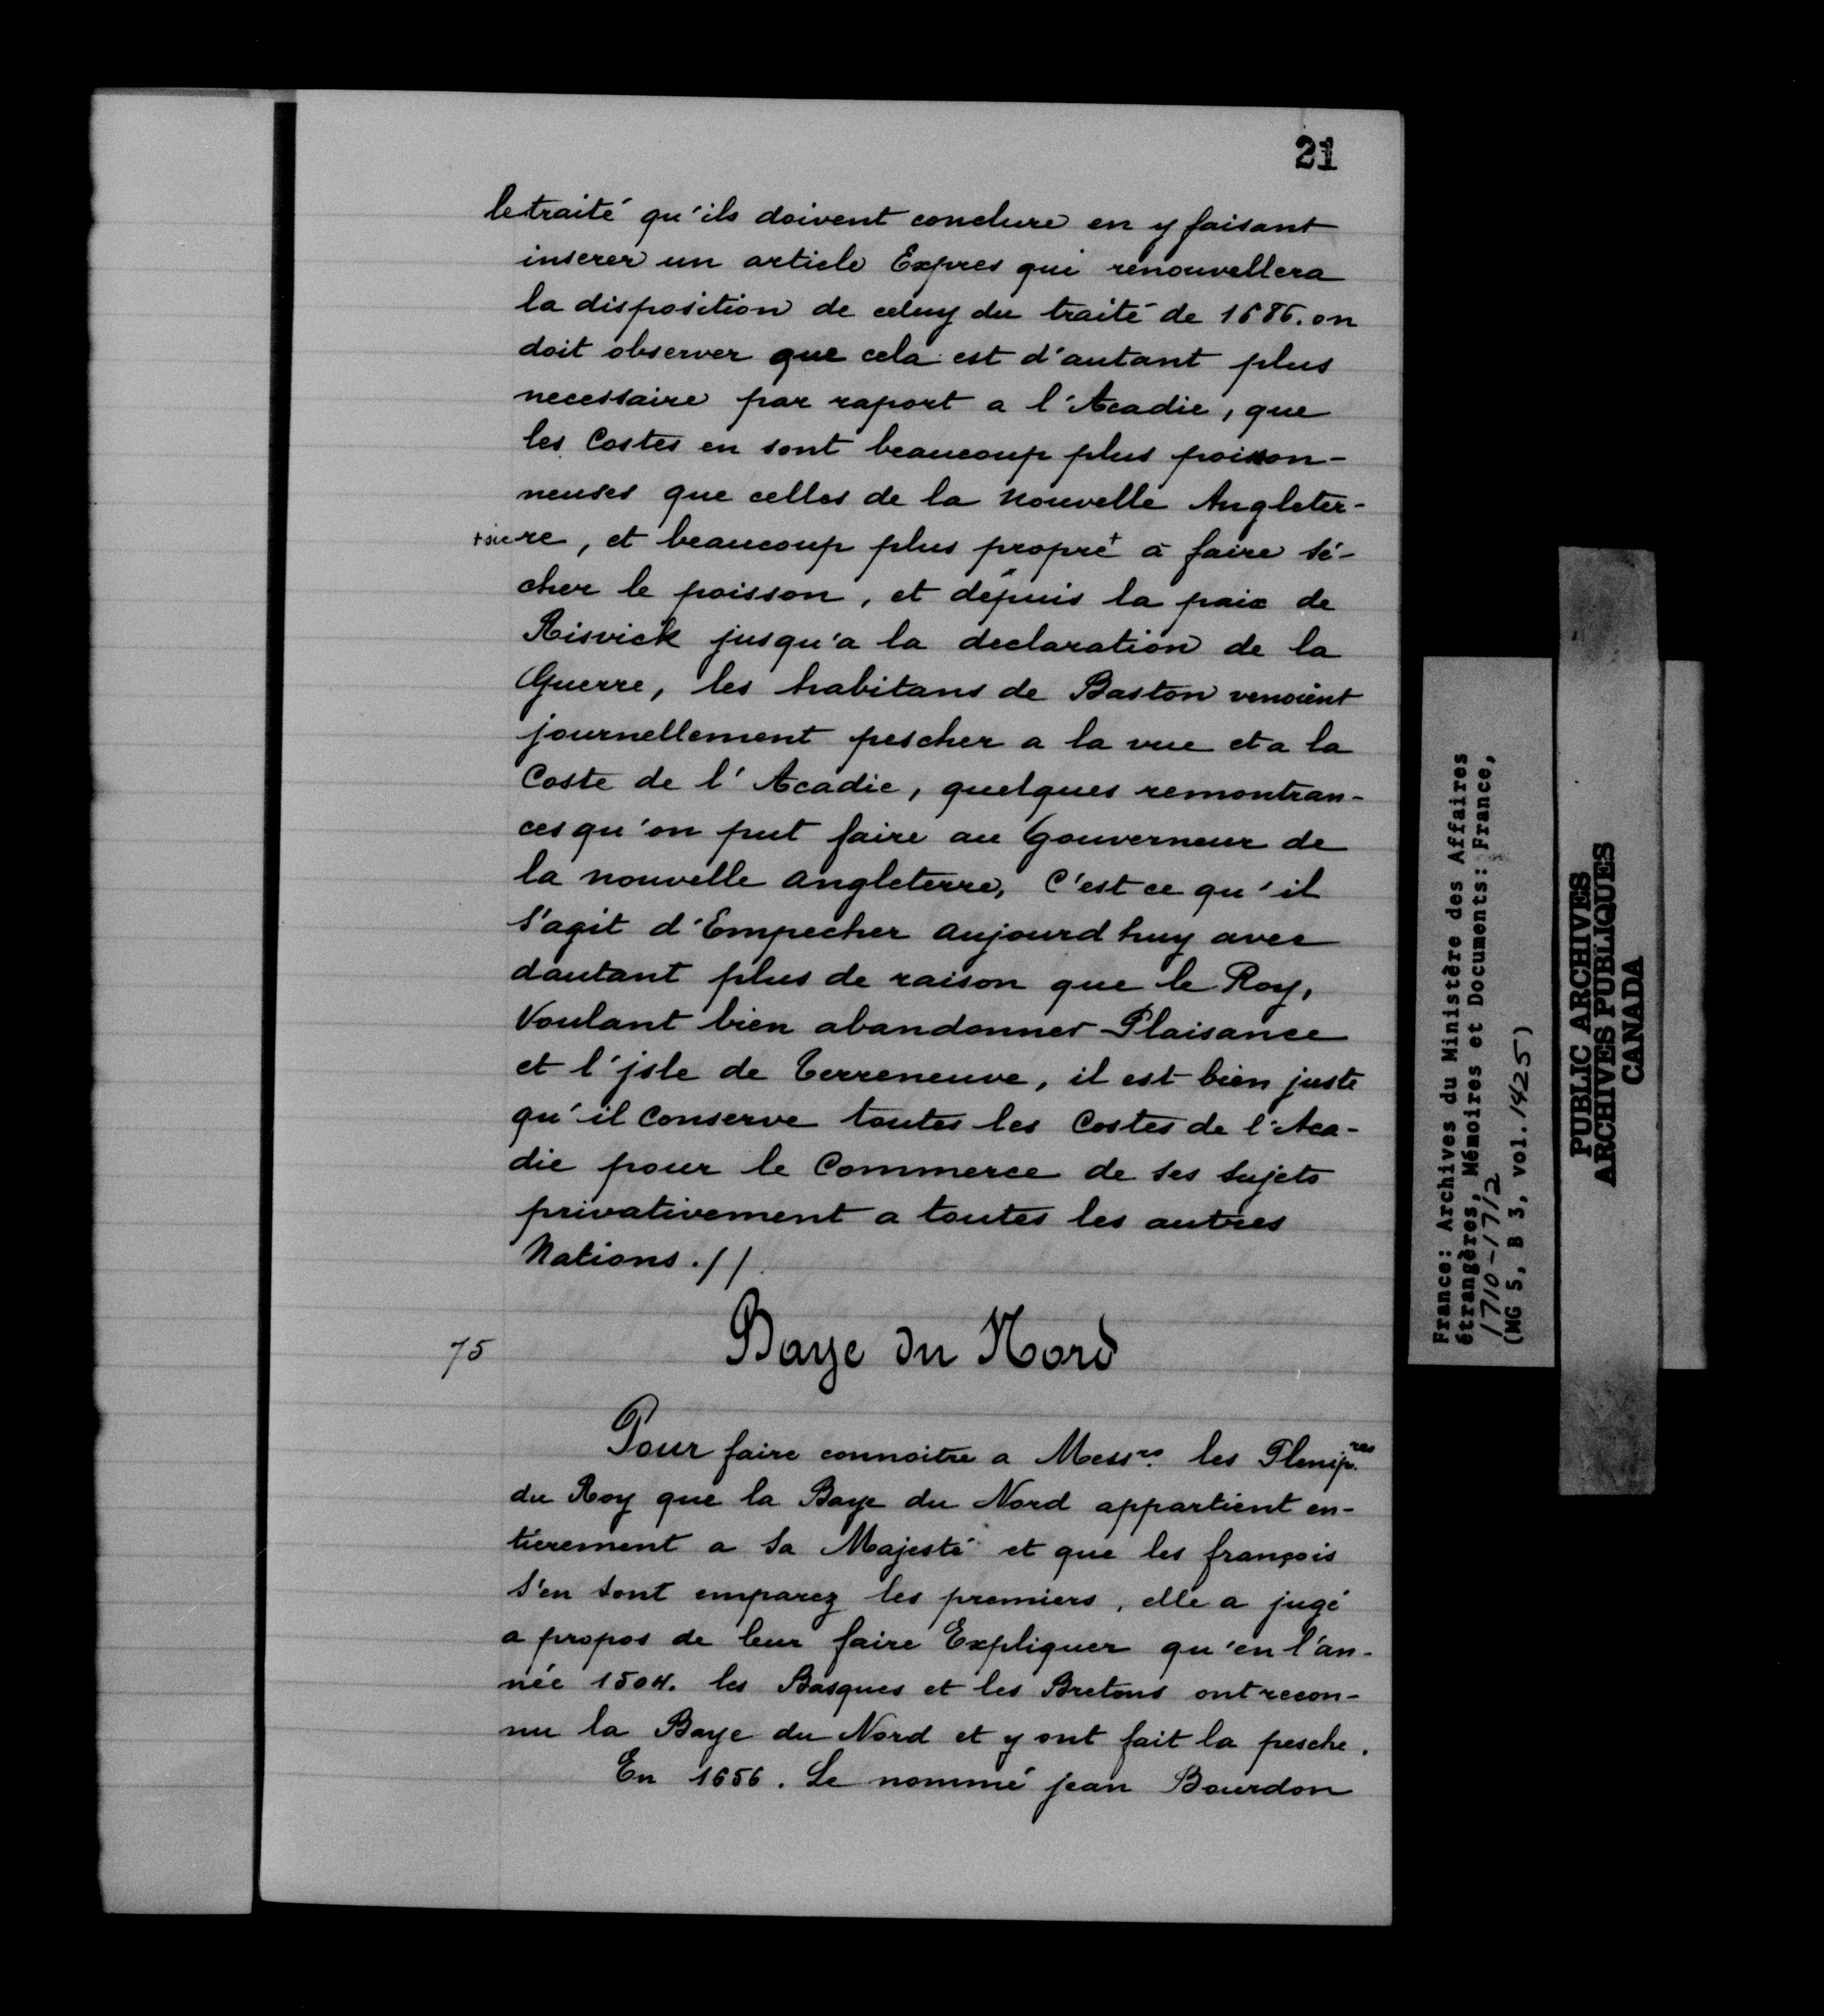 21
le traité qu'ils doivent conclure en y faisant
inserer un article Exprès qui renouvellera
la disposition de celuy du traité de 1686. on
doit observer que cela est d'autant plus
necessaire par raport a l'Acadie, que
les Costes en sont beaucoup plus poisson-
neuses que celles de la Nouvelle Angleter-
+sic re, et beaucoup plus propre+ à faire sé-
cher le poisson, et depuis la paix de
Risvick jusqu'a la declaration de la
Guerre, les habitans de Baston venoient
journellement pescher a la vue et a la
Coste de l'Acadie, quelques remontran-
ces qu'on put faire au Gouverneur de
la nouvelle angleterre, C'est ce qu'il
s'agit d'Empecher aujourd huy avec
dautant plus de raison que le Roy,
Voulant bien abandonner Plaisance
et l'jsle de Terreneuve, il est bien juste
qu'il Conserve toutes les Costes de l'Aca-
die pour le Commerce de ses sujets
privativement a toutes les autres
Nations.//.
75 Baye du Nord
Pour faire connoitre a Messrs. les Plenip.res
du Roy que la Baye du Nord appartient en-
tierement a Sa Majesté et que les françois
s'en sont emparez les premiers, elle a jugé
a propos de leur faire Expliquer qu'en l'an-
née 1504. les Basques et les Bretons ont recon-
nu la Baye du Nord et y ont fait la pesche.
En 1656. Le nommé jean Bourdon
France: Archives du Ministère des Affaires
étrangères, Mémoires et Documents: France,
1710-1712
(MG 5, B 3, vol. 1425)
PUBLIC ARCHIVES
ARCHIVES PUBLIQUES
CANADA